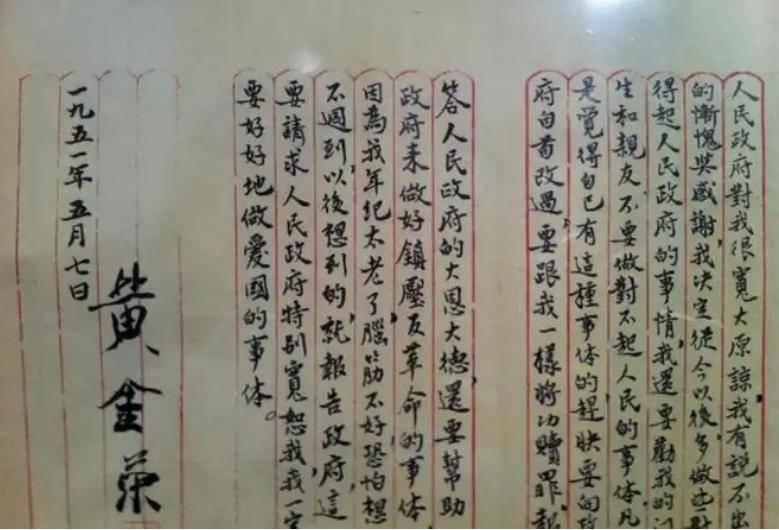 人民政府對我很寬大原諒，我有說不出
的慚愧與感謝，我決定從今以後多做
得起人民政府的事情，我還要勸我的
生和親友，不要做對不起人民的事体，凡
是覺得自己有這種事体的，趕快要向政
府自首改過，要跟我一樣將功贖罪，
答人民政府的大恩大德，還要幫助
政府來做好鎮壓反革命的事体，
因為我年紀太老了，腦筋不好，恐怕想
不週到，以後想到的，就報告政府，這
要請求人民政府特别寬恕我，我一定
要好好地做愛國的事体。
一九五一年五月七日
黄金荣